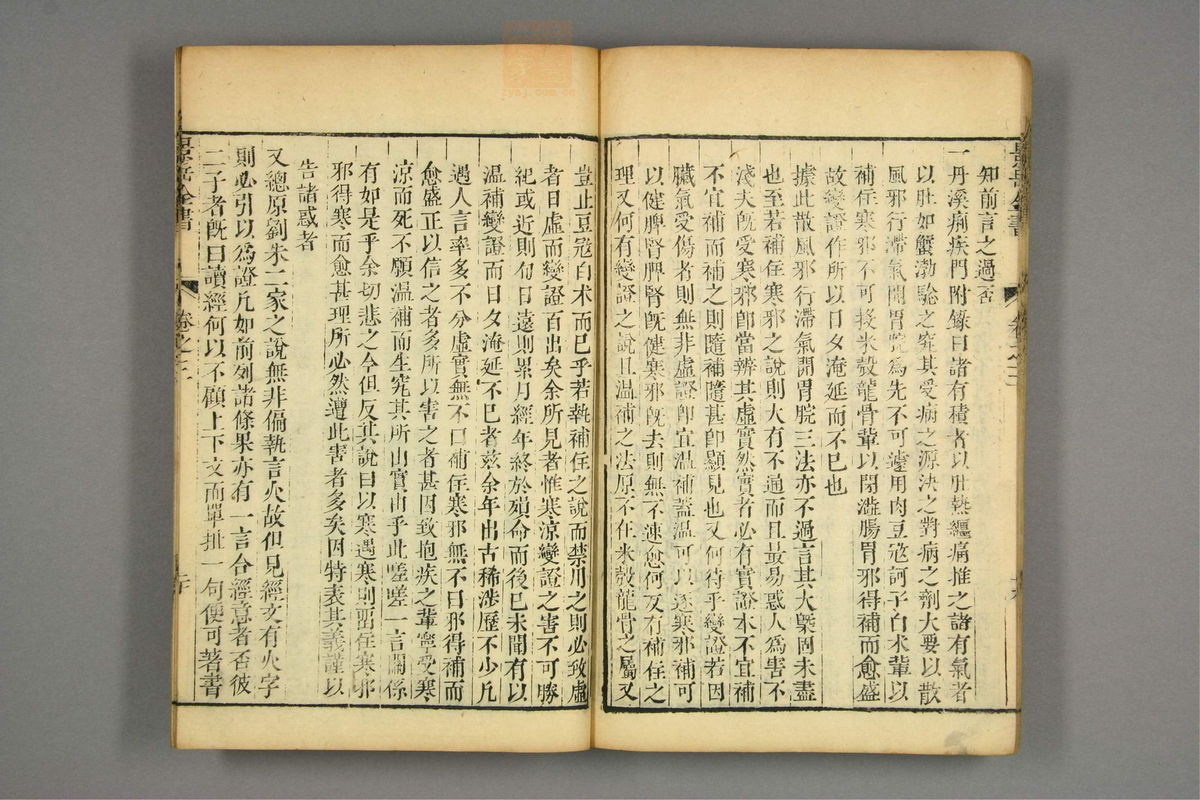 知前言之過否
一丹溪痢疾門附錄曰諸有積者以肚熱纏痛推之諸有氣者
以肚如蟹渤驗之究其受病之源決之對病之劑大要以散
風邪行滯氣開胃脘為先不可遽用肉豆蔻訶子白术輩以
補住寒邪不可投米殼龍骨輩以閉澁腸胃邪得補而愈盛
故變證作所以日夕淹延而不已也
據此散風邪行滯氣開胃脘三法亦不過言其大槩固未盡
也至若補住寒邪之說則大有不通而且最易惑人為害不
淺夫旣受寒邪卽當辨其虛實然實者必有實證本不宜補
不宜補而補之則隨補隨甚卽顯見也又何待乎變證若因
臟氣受傷者則無非虛證卽宜温補蓋温可以逐寒邪補可
以健脾腎脾腎旣健寒邪旣去則無不速愈何反有補住之
理又何有變證之說且温補之法原不在米殼龍骨之屬又
豈止豆蔻白术而已乎若執補住之說而禁用之則必致虛
者日虛而變證百出矣余所見者惟寒涼變證之害不可勝
紀或近則旬日遠則累月經年終於殞命而後已未聞有以
温補變證而日夕淹延不已者兹余年出古稀渉歷不少凡
遇人言率多不分虛實無不曰補住寒邪無不曰邪得補而
愈盛正以信之者多所以害之者甚因致抱疾之輩寧受寒
涼而死不願温補而生究其所由實由乎此嗟嗟一言關係
有如是乎余切悲之今但反其說曰以寒遇寒則留住寒邪
邪得寒而愈甚理所必然遭此害者多矣因特表其義謹以
告諸惑者
又總原劉朱二家之說無非偏執言火故但見經文有火字
則必引以爲證凡如前列諸條果亦有一言合經意者否彼
二子者旣曰讀經何以不顧上下文而單扯一句便可著書
景岳全書
卷之三